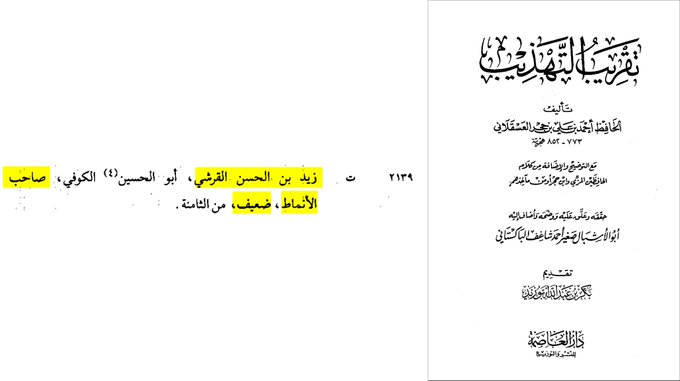 ٢١٣٩ ت زيد بن الحسن القرشي، أبو الحسين(٤) الكوفي، صاحب
الأنماط، ضعيف، من الثامنة.
تقريب التهذيب
تأليف
الحافظ أحمد بن علي بن حجر العسقلاني
٧٧٣ - ٨٥٢ هجرية
مع التوضيح والإضافة من كلام
الحافظين المزي وابن حجر أو من مآخذهم
حققه وعلق عليه ووضحه وأضاف إليه
أبو الأشبال صغير أحمد شاغف الباكستاني
تقديم
بكر بن عبد الله أبو زيد
دار العاصمة
للنشر والتوزيع